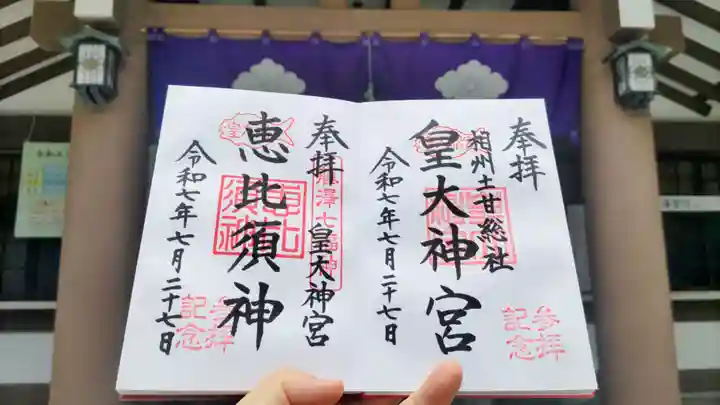 奉拝
相州土甘総社
皇大神宮
令和七年七月二十七日
参拝
記念
奉拝
藤澤七福神
皇大神宮
恵比須神
恵比
須神
令和七年七月二十七日
参拝
記念